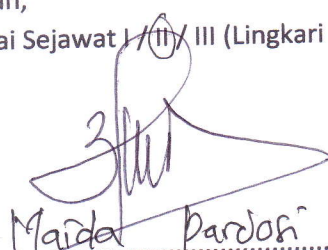 an,
ai Sejawat I / II / III (Lingkari
Maida Dardosi